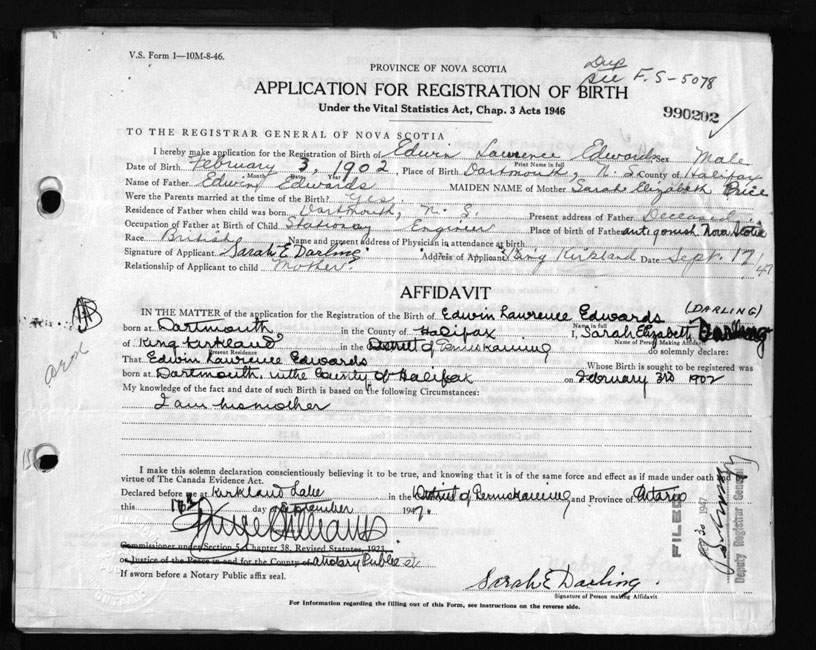 V.S. Form 1—10M-8-46.
PROVINCE OF NOVA SCOTIA
Dup
See F.S-5078
APPLICATION FOR REGISTRATION OF BIRTH
Under the Vital Statistics Act, Chap. 3 Acts 1946
990202
TO THE REGISTRAR GENERAL OF NOVA SCOTIA
I hereby make application for the Registration of Birth of Edwin Lawrence Edwards Sex Male
Print Name in full
Date of Birth February 3, 1902, Place of Birth Dartmouth, N.S. County of Halifax
Month Day Year
Name of Father Edwin Edwards MAIDEN NAME of Mother Sarah Elizabeth Price
Were the Parents married at the time of Birth? Yes
Residence of Father when child was born Dartmouth, N.S. Present address of Father Deceased
Occupation of Father at Birth of Child Stationary Engineer Place of birth of Father Antigonish Nova Scotia
Race British Name and present address of Physician in attendance at birth
Signature of Applicant Sarah E Darling Address of Applicant King Kirkland Date Sept. 17/47
Relationship of Applicant to child Mother
AFFIDAVIT
IN THE MATTER of the application for the Registration of the Birth of Edwin Lawrence Edwards (DARLING)
Name in full
born at Dartmouth in the County of Halifax I, Sarah Elizabeth Darling
Name of Person Making Affidavit
of King Kirkland in the District of Temiskaming do solemnly declare:
Present Residence
That Edwin Lawrence Edwards Whose Birth is sought to be registered was
born at Dartmouth in the County of Halifax on February 3rd 1902
My knowledge of the fact and date of such Birth is based on the following Circumstances:
I am his mother
I make this solemn declaration conscientiously believing it to be true, and knowing that it is of the same force and effect as if made under oath and by virtue of The Canada Evidence Act.
Declared before me at Kirkland Lake in the District of Temiskaming and Province of Ontario
this 17th day of September 1947.
Commissioner under Section 5, Chapter 38, Revised Statutes, 1923
or Justice of the Peace in and for the County of a Notary Public
If sworn before a Notary Public affix seal.
Sarah E Darling.
Signature of Person making Affidavit
For Information regarding the filling out of this Form, see instructions on the reverse side.
FILED
30 1947
Deputy Registrar General